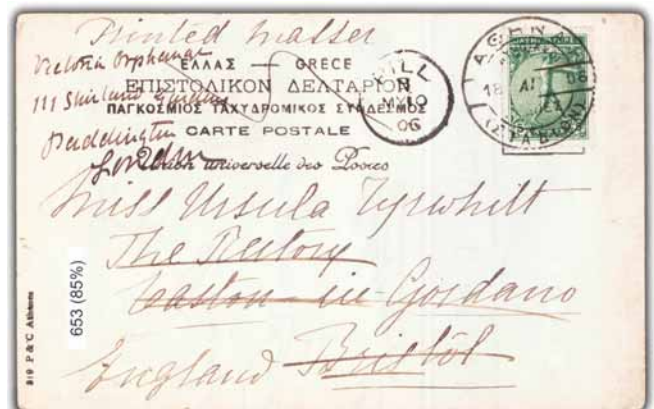 Printed matter
Victoria Orphanage
111 Shirland Gardens
Paddington
London
ΕΛΛΑΣ — GRECE
ΕΠΙΣΤΟΛΙΚΟΝ ΔΕΛΤΑΡΙΟΝ
ΠΑΓΚΟΣΜΙΟΣ ΤΑΧΥΔΡΟΜΙΚΟΣ ΣΥΝΔΕΣΜΟΣ
CARTE POSTALE
Union universelle des Postes
MY 10
06
ΑΘΗΝ
18 ΑΠ 06
Miss Ursula Tyrwhitt
The Rectory
Easton-in-Gordano
Bristol
England
653 (85%)
219 P & C Athènes